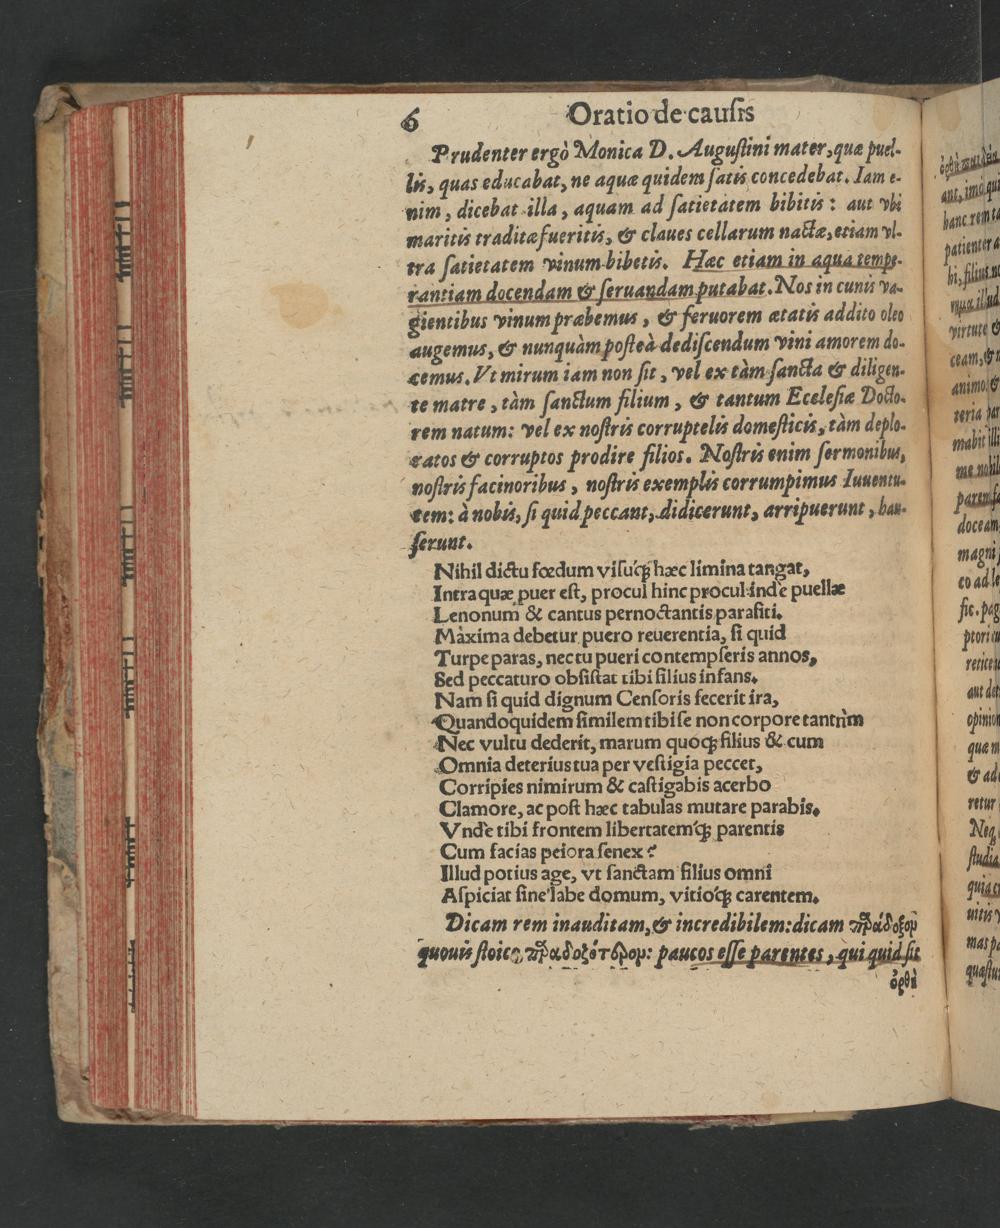 6 Oratio de causis
Prudenter ergò Monica D. Augustini mater, quæ puel-
lis, quas educabat, ne aquæ quidem satis concedebat. Iam e-
nim, dicebat illa, aquam ad satietatem bibitis: aut vbi
maritis traditæ fueritis, & claues cellarum nactæ, etiam vl-
tra satietatem vinum bibetis. Hæc etiam in aqua tempe-
rantiam docendam & seruandam putabat. Nos in cunis va-
gientibus vinum præbemus, & feruorem ætatis addito oleo
augemus, & nunquàm posteà dediscendum vini amorem do-
cemus. Vt mirum iam non sit, vel ex tàm sancta & diligen-
te matre, tàm sanctum filium, & tantum Ecclesiæ Docto-
rem natum: vel ex nostris corruptelis domesticis, tàm deplo-
ratos & corruptos prodire filios. Nostris enim sermonibus,
nostris facinoribus, nostris exemplis corrumpimus Iuuentu-
tem: à nobis, si quid peccant, didicerunt, arripuerunt, hau-
serunt.
Nihil dictu fœdum visuq́; hæc limina tangat,
Intra quæ puer est, procul hinc procul indè puellæ
Lenonum & cantus pernoctantis parasiti.
Màxima debetur puero reuerentia, si quid
Turpe paras, nec tu pueri contempseris annos,
Sed peccaturo obsistat tibi filius infans.
Nam si quid dignum Censoris fecerit ira,
Quandoquidem similem tibi se non corpore tantùm
Nec vultu dederit, marum quoq; filius & cum
Omnia deterius tua per vestigia peccet,
Corripies nimirum & castigabis acerbo
Clamore, ac post hæc tabulas mutare parabis.
Vndè tibi frontem libertatemq́; parentis
Cum facias peiora senex?
Illud potius age, vt sanctam filius omni
Aspiciat sine labe domum, vitioq́; carentem.
Dicam rem inauditam, & incredibilem: dicam παράδοξον
quouis stoico παραδοξότερον: paucos esse parentes, qui quid sit
ὀρθὴ